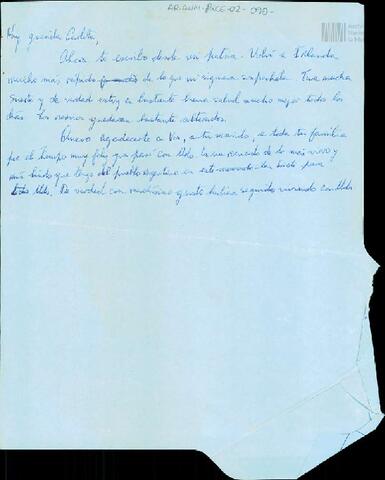 AR-ANM-PXCE-02-090-
Muy querida
Ahora te escribo desde mi patria. Volví a Irlanda
mucho más rápido de lo que ni siquiera sospechaba. Tuve mucha
suerte y de verdad estoy en bastante buena salud mucho mejor todos los
días. Los nervios quedaron bastante alterados.
Quiero agradecerte a Vos, a tu marido, a toda tu familia
por el tiempo muy feliz que pasé con Uds. Es un recuerdo de lo más vivo y
más lindo que tengo del pueblo Argentino en este momento tan triste para
todos Uds. De verdad con muchísimo gusto hubiera seguido viviendo con Uds